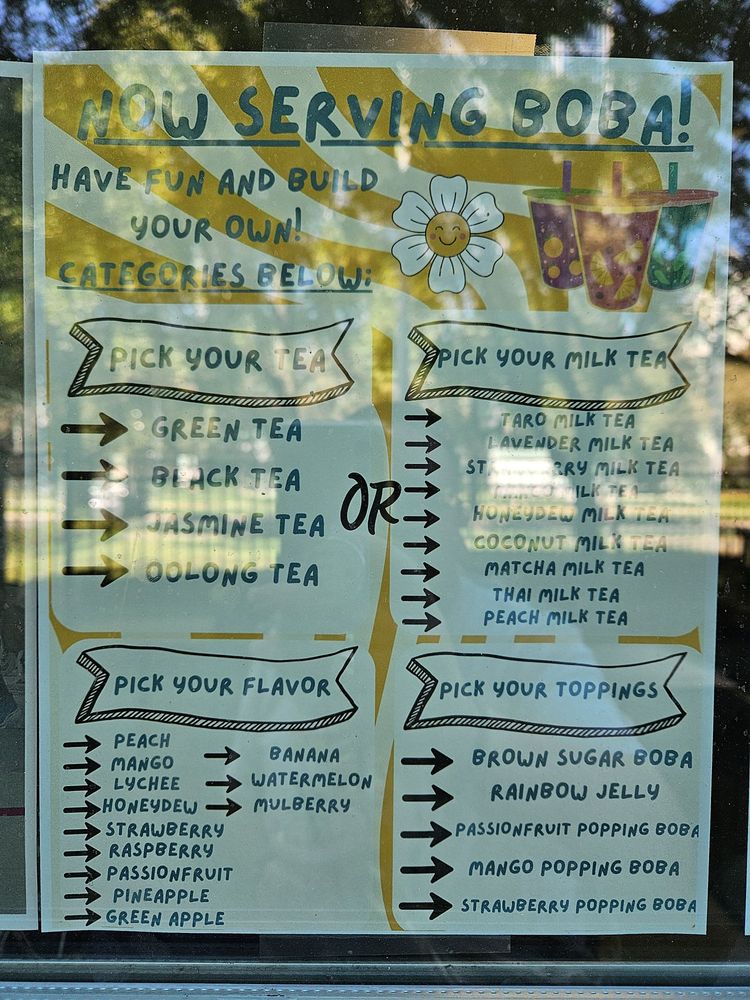 NOW SERVING BOBA!
HAVE FUN AND BUILD
YOUR OWN!
CATEGORIES BELOW:
PICK YOUR TEA
GREEN TEA
BLACK TEA
JASMINE TEA
OOLONG TEA
OR
PICK YOUR MILK TEA
TARO MILK TEA
LAVENDER MILK TEA
STRAWBERRY MILK TEA
MANGO MILK TEA
HONEYDEW MILK TEA
COCONUT MILK TEA
MATCHA MILK TEA
THAI MILK TEA
PEACH MILK TEA
PICK YOUR FLAVOR
PEACH
MANGO
LYCHEE
HONEYDEW
STRAWBERRY
RASPBERRY
PASSIONFRUIT
PINEAPPLE
GREEN APPLE
BANANA
WATERMELON
MULBERRY
PICK YOUR TOPPINGS
BROWN SUGAR BOBA
RAINBOW JELLY
PASSIONFRUIT POPPING BOBA
MANGO POPPING BOBA
STRAWBERRY POPPING BOBA